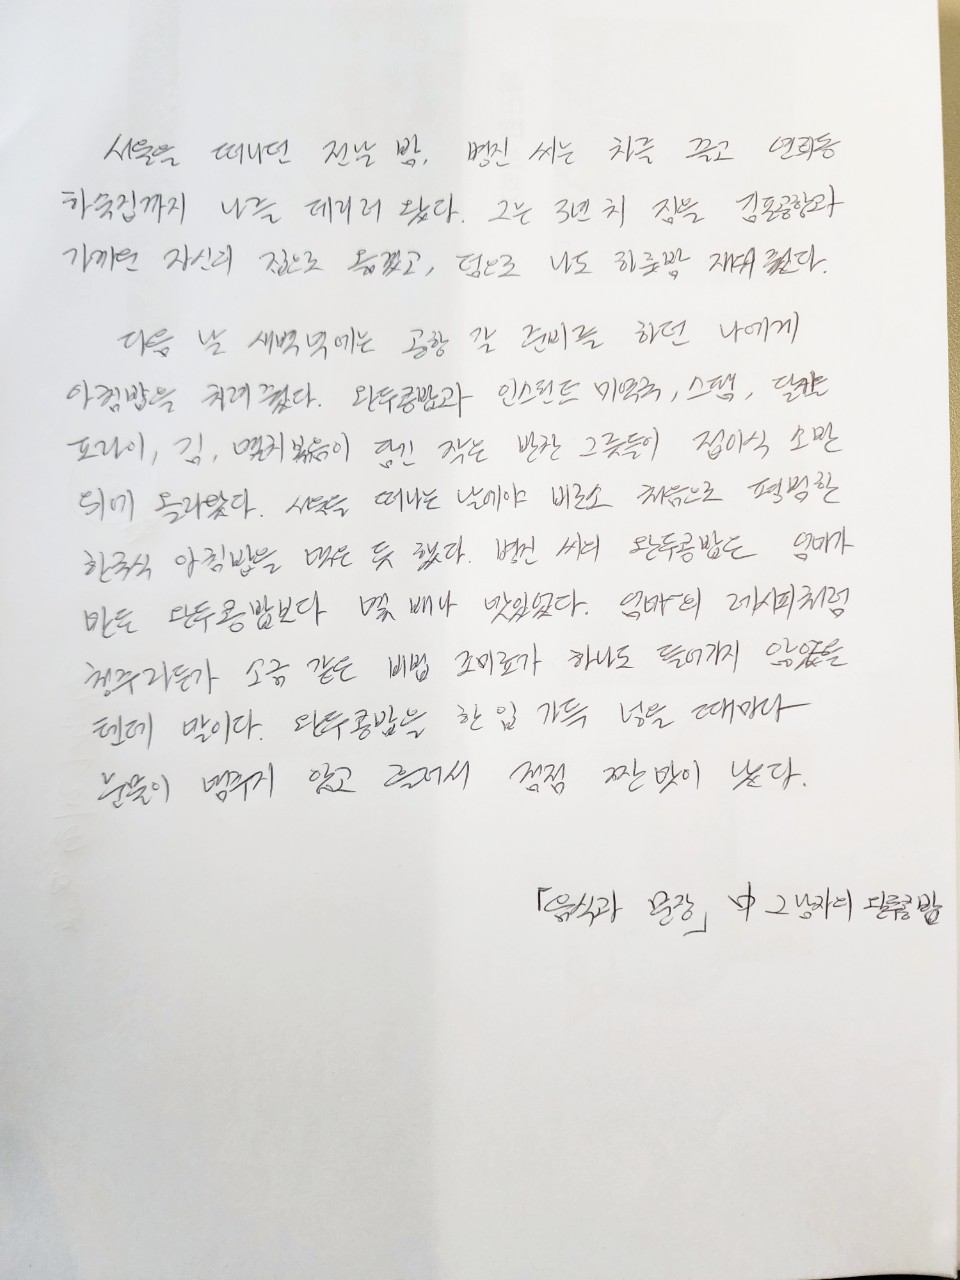 서울을 떠나던 전날 밤, 병진 씨는 차를 끌고 연희동
하숙집까지 나를 데리러 왔다. 그는 3년 치 짐을 김포공항과
가까운 자신의 집으로 옮겼고, 덤으로 나도 하룻밤 재워 줬다.
다음 날 새벽녘에는 공항 갈 준비를 하던 나에게
아침밥을 차려 줬다. 완두콩밥과 인스턴트 미역국, 스팸, 달걀
프라이, 김, 멸치볶음이 담긴 작은 반찬 그릇들이 접이식 소반
위에 올라왔다. 서울을 떠나는 날에야 비로소 처음으로 평범한
한국식 아침밥을 먹은 듯 했다. 병진 씨의 완두콩밥은 엄마가
만든 완두콩밥보다 몇 배나 맛있었다. 엄마의 레시피처럼
청주라든가 소금 같은 비법 조미료가 하나도 들어가지 않았을
텐데 말이다. 완두콩밥을 한 입 가득 넣을 때마다
눈물이 멈추지 않고 흘러서 점점 짠맛이 났다.
「음식과 문장」 中 그 남자의 완두콩밥